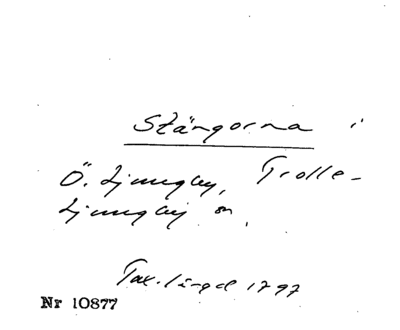 Stängorna i
Ö. Ljungby, Trolle-
Ljungby sn.
Tax.längd 1797
Nr 10877